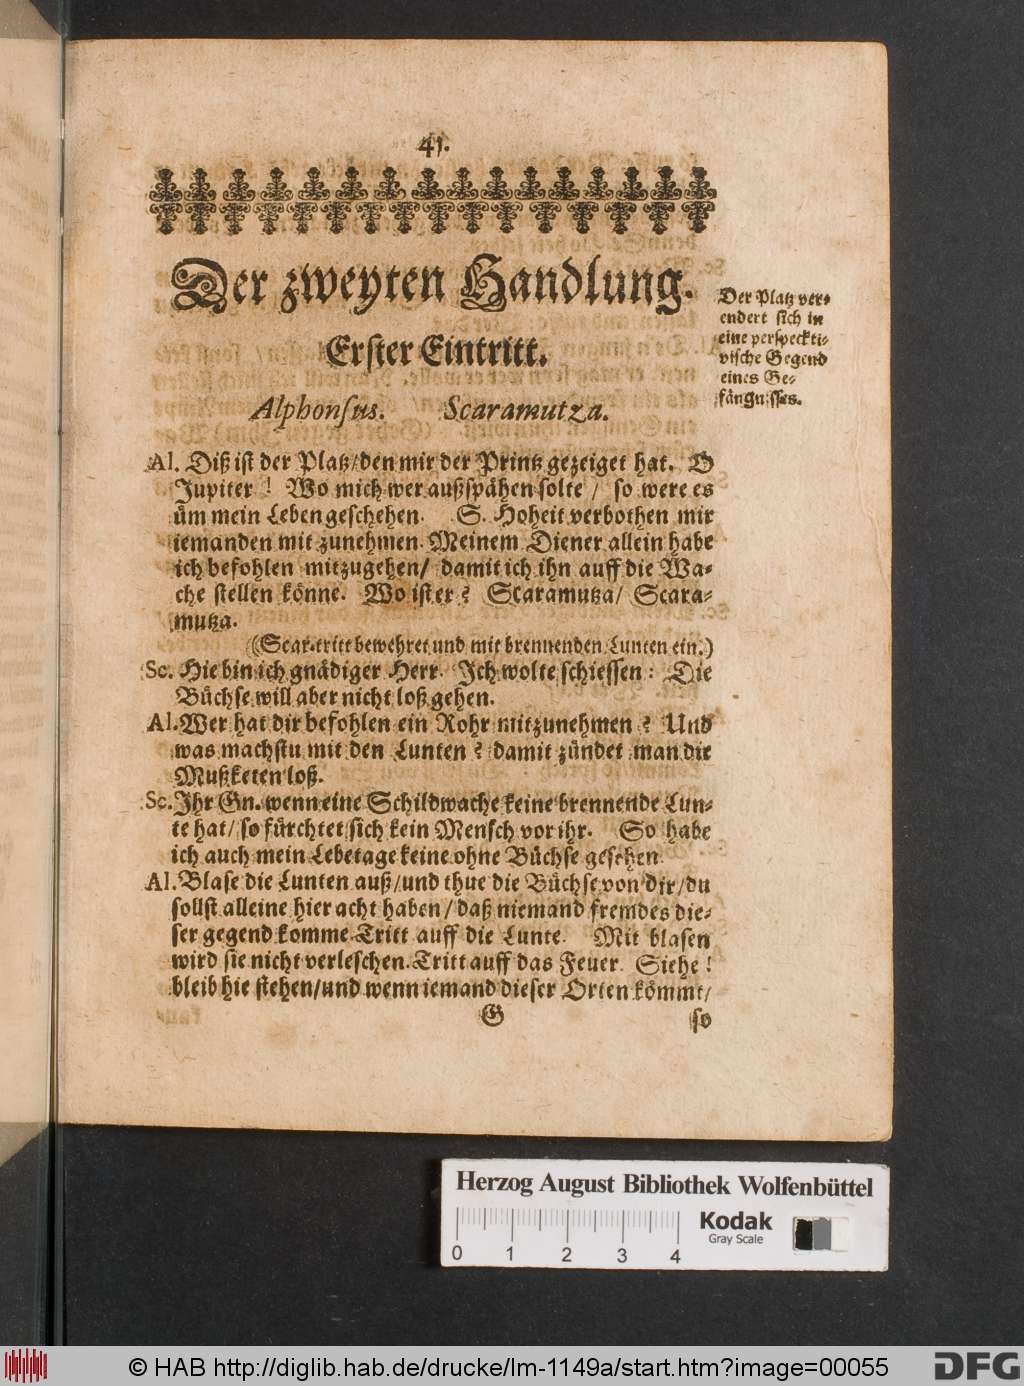 41.
Der zweyten Handlung.
Erster Eintritt.
Der Platz ver-
endert sich in
eine perspeckti-
vische Gegend
eines Ge-
fängnisses.
Alphonsus. Scaramutza.
Al. Diß ist der Platz/den mir der Printz gezeiget hat. O
Jupiter! Wo mich wer außspähen solte / so were es
üm mein Leben geschehen. S. Hoheit verbothen mir
iemanden mit zunehmen. Meinem Diener allein habe
ich befohlen mitzugehen/ damit ich ihn auff die Wa-
che stellen könne. Wo ist er? Scaramutza/ Scara-
mutza.
(Scar. tritt bewehret und mit brennenden Lunten ein.)
Sc. Hie bin ich gnädiger Herr. Ich wolte schiessen: Die
Büchse will aber nicht loß gehen.
Al. Wer hat dir befohlen ein Rohr mitzunehmen? Und
was machstu mit den Lunten? damit zündet man die
Mußketen loß.
Sc. Ihr Gn. wenn eine Schildwache keine brennende Lun-
te hat/ so fürchtet sich kein Mensch vor ihr. So habe
ich auch mein Lebetage keine ohne Büchse gesehen.
Al. Blase die Lunten auß/und thue die Büchse von dir/du
sollst alleine hier acht haben/daß niemand fremdes die-
ser gegend komme. Tritt auff die Lunte. Mit blasen
wird sie nicht verleschen. Tritt auff das Feuer. Siehe!
bleib hie stehen/und wenn iemand dieser Orten kömmt/
G so
Herzog August Bibliothek Wolfenbüttel
Kodak
Gray Scale
0 1 2 3 4
© HAB http://diglib.hab.de/drucke/lm-1149a/start.htm?image=00055
DFG